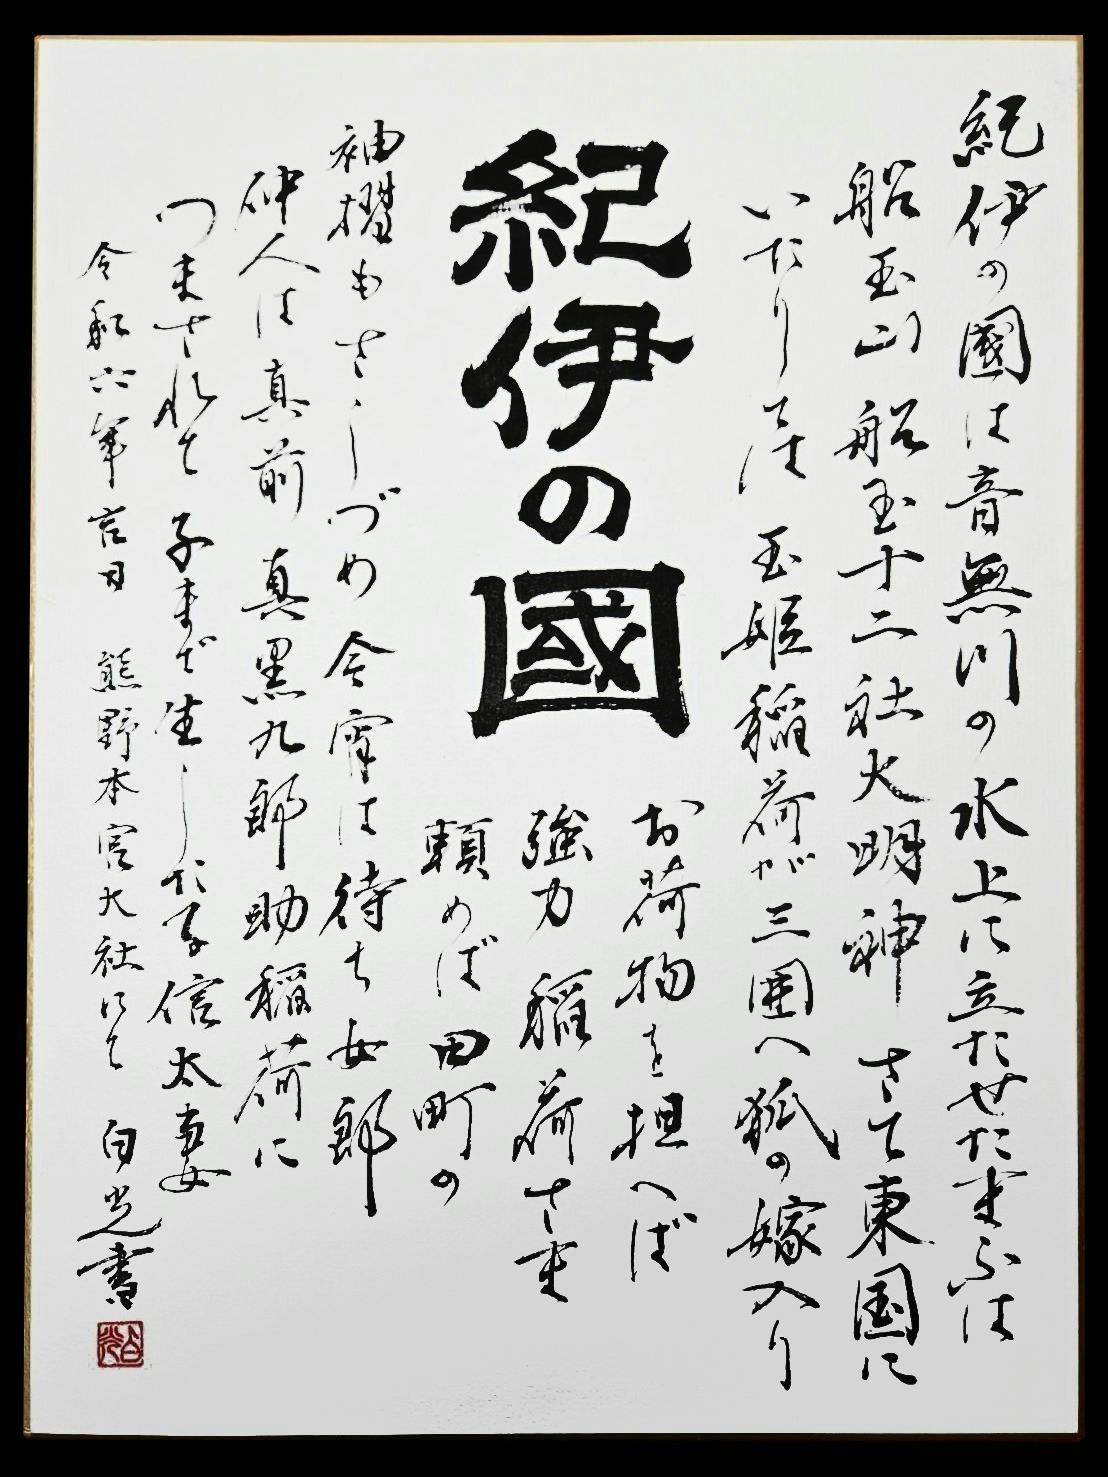 紀伊の國は音無川の水上に立たせたまふは
船玉山 船玉十二社大明神 さて東国に
いたりては 玉姫稲荷が三囲へ狐の嫁入り
紀伊の國
お荷物を担へば
強力稲荷さま
頼めば田町の
袖摺もさしづめ今宵は待ち女郎
仲人は真前 真黒九郎助稲荷に
つまされて 子まで生した子信太妻
令和六年吉日 熊野本宮大社にて 白光書
白光